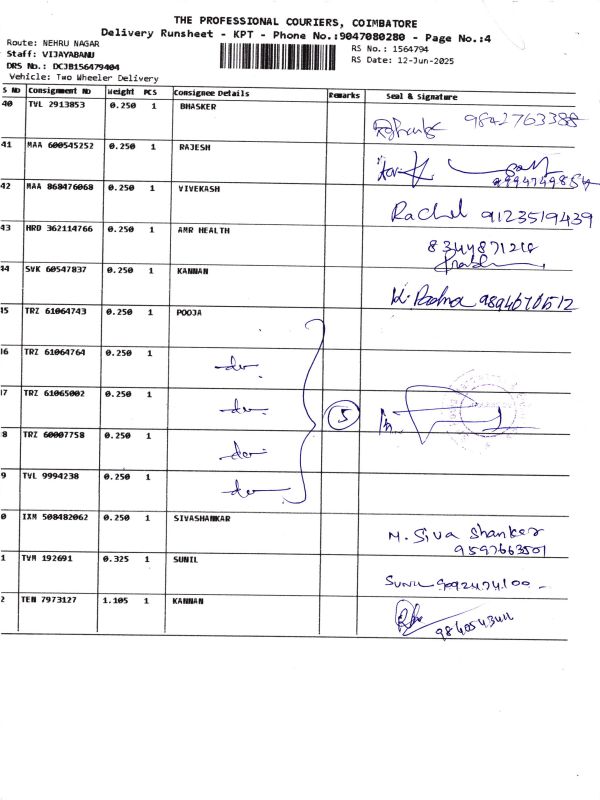 THE PROFESSIONAL COURIERS, COIMBATORE
Delivery Runsheet - KPT - Phone No.:9047080280 - Page No.:4
Route: NEHRU NAGAR
RS No.: 1564794
Staff: VIJAYABANU
RS Date: 12-Jun-2025
DRS No.: DCJB156479404
Vehicle: Two Wheeler Delivery
S No Consignment No Weight PCS Consignee Details Remarks Seal & Signature
40 TVL 2913853 0.250 1 BHASKER
9842763388
41 MAA 600545252 0.250 1 RAJESH
42 MAA 868476068 0.250 1 VIVEKASH
Rachel 9123519439
43 HRD 362114766 0.250 1 AMR HEALTH
8344871218
44 SVK 60547837 0.250 1 KANNAN
K. Padma 9894670512
15 TRZ 61064743 0.250 1 POOJA
16 TRZ 61064764 0.250 1 do
17 TRZ 61065002 0.250 1 do 5
8 TRZ 60007758 0.250 1 do
9 TVL 9994238 0.250 1 do
0 IXM 508482062 0.250 1 SIVASHANKAR
M. Siva Shanker
9597663501
1 TVM 192691 0.325 1 SUNIL
Sunil 9092474100
2 TEN 7973127 1.105 1 KANNAN